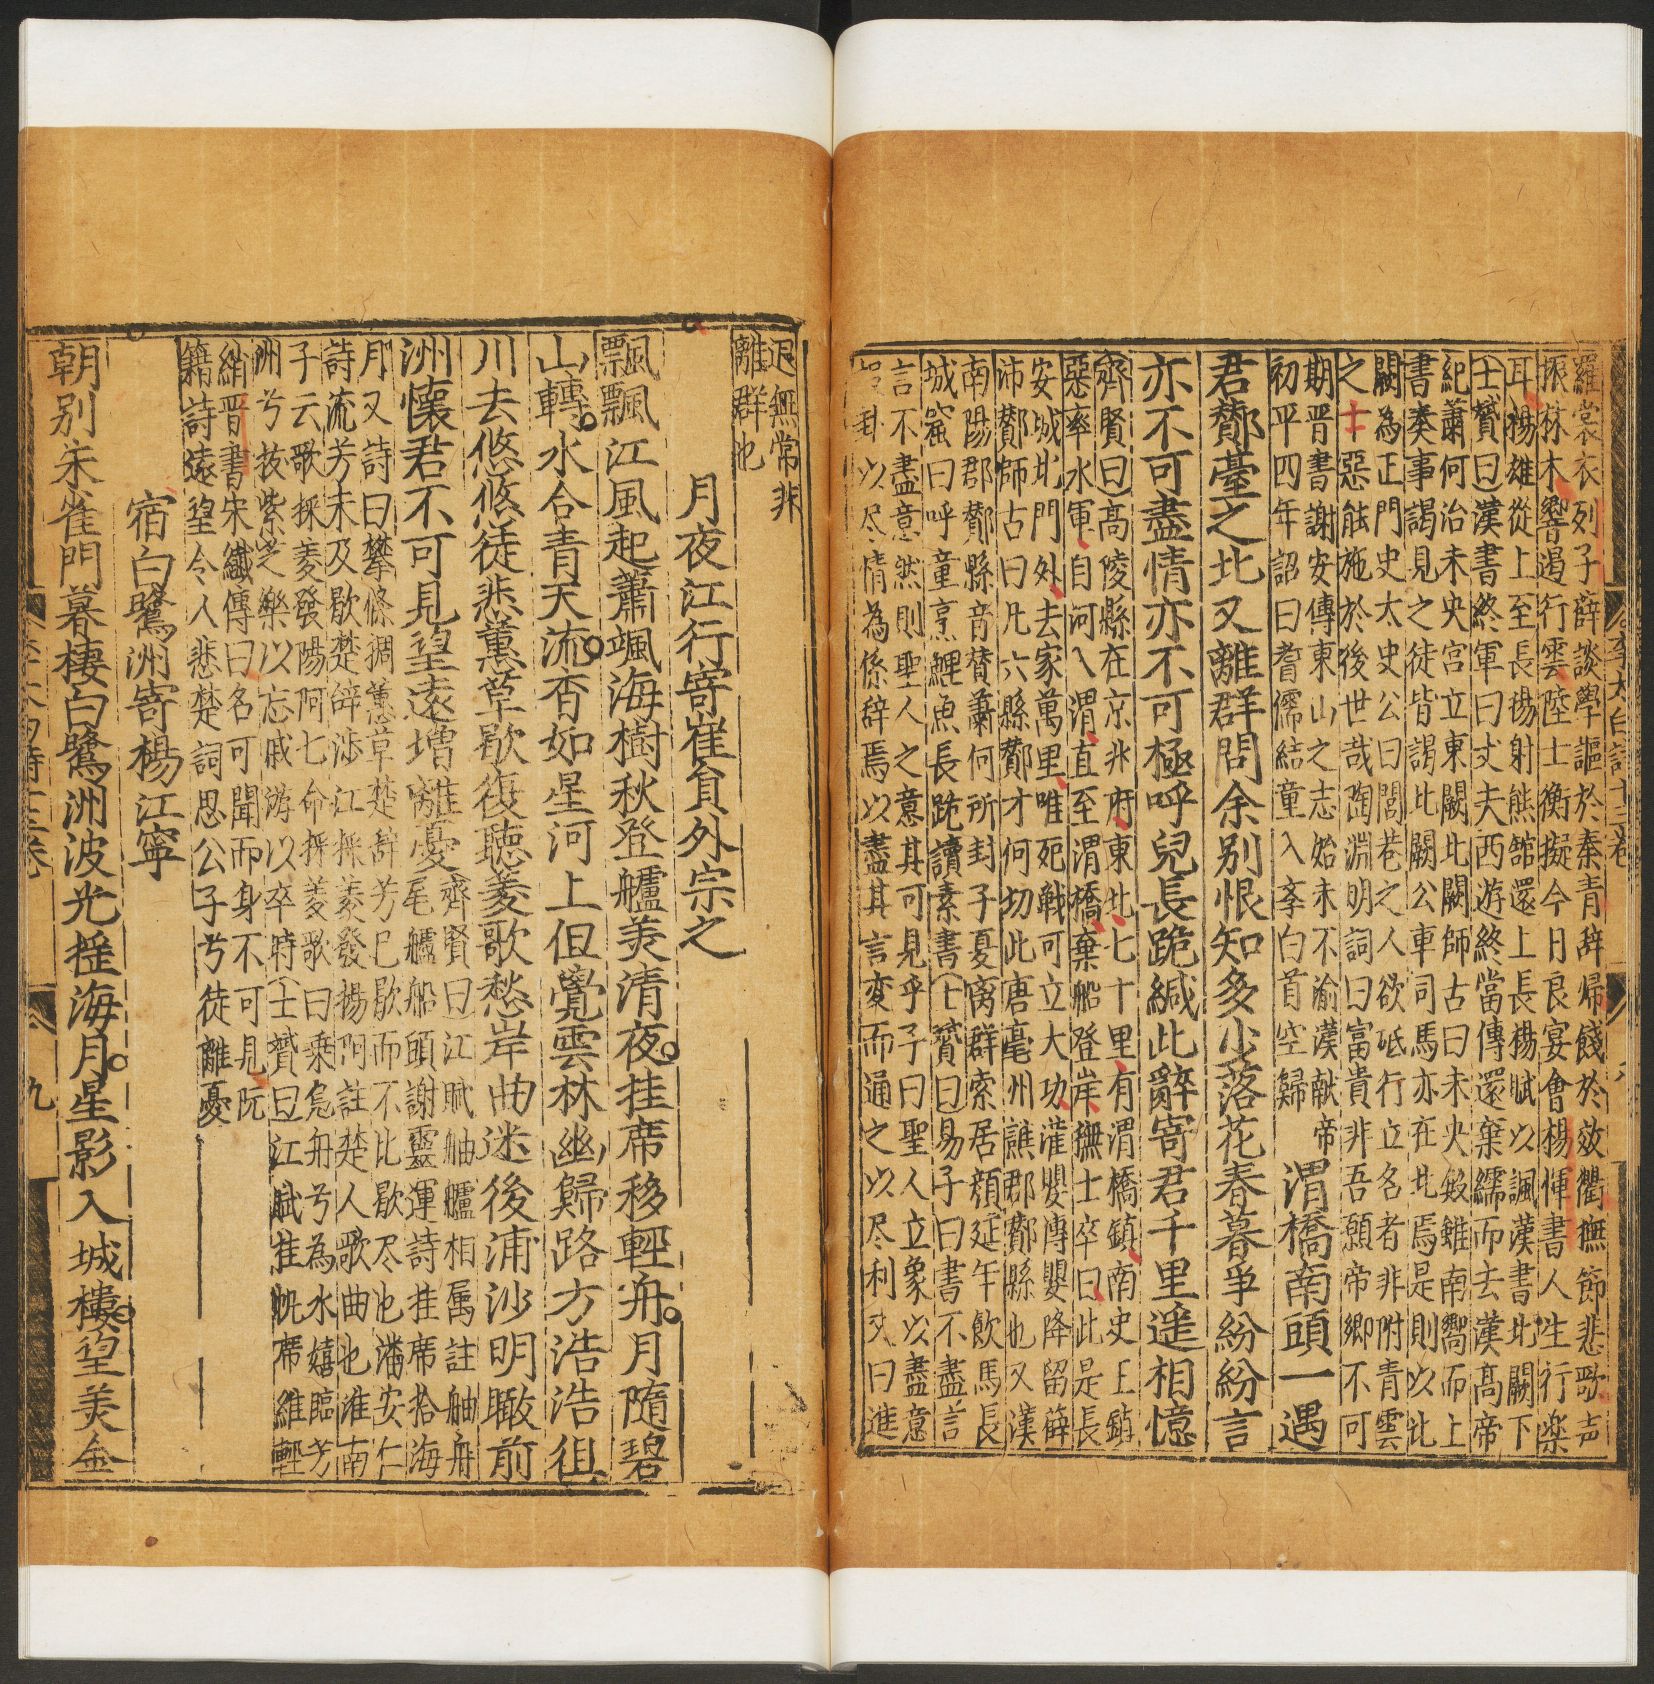 羅裳衣列子薛談學謳於秦青辞帰餞於效衢撫節悲歌声
振林木響遏行雲陸士衡擬今日良宴會楊惲書人生行楽
耳楊雄從上至長楊射熊舘還上長楊賦以諷漢書北闕下
士贇曰漢書終軍曰丈夫西游終當傳還棄繻而去漢髙帝
紀蕭何治未央宮立東闕北闕師古曰未央殿雖南嚮而上
書奏事謁見之徒皆謁北闕公車司馬亦在北焉是則以北
闕為正門史太史公曰閭巷之人欲砥行立名者非附青雲
之士惡能施於後世哉陶淵明詞曰富貴非吾願帝鄉不可
期晋書謝安傳東山之志始未不渝漢献帝
初平四年詔曰耆儒結童入李白首空歸
渭橋南頭一遇
君酇臺之北又離群問余别恨知多少落花春暮爭紛紛言
亦不可盡情亦不可極呼兒長跪緘此辭寄君千里遥相憶
齊賢曰髙陵縣在京兆府東北七十里有渭橋鎮南史王鎮
惡率水軍自河入渭直至渭橋棄船登岸撫士卒曰此是長
安城北門外去家萬里唯死戦可立大功灌嬰傳嬰降留薛
沛酇師古曰凡六縣酇才何切此唐亳州譙郡酇縣也又漢
南陽郡酇縣音賛蕭何所封子夏离群索居顔延年飲馬長
城窟曰呼童烹鯉魚長跪讀素書士贇曰易子曰書不盡言
言不盡意然則聖人之意其可見乎子曰聖人立象以盡意
設卦以尽情為係辞焉以盡其言変而通之以尽利爻曰進
李太白詩十三卷
八
退無常非
離群也
月夜江行寄崔貟外宗之
飄飄江風起蕭颯海樹秋登艫羙清夜挂席移輕舟月隨碧
山轉水合青天流杳如星河上但覺雲林幽歸路方浩浩徂
川去悠悠徒悲蕙草歇復聴菱歌愁岸曲迷後浦沙明瞰前
洲懷君不可見望遠增離憂
齊賢曰江賦舳艫相属註舳舟
尾艫船頭謝靈運詩挂席拾海
月又詩曰攀條搦蕙草楚辞芳已歇而不比歇尽也潘安仁
詩流芳未及歇楚辞渉江採菱發揚阿註楚人歌曲也淮南
子云歌採菱發陽阿七命採菱歌曰乗鳧舟兮為水嬉臨芳
洲兮抜紫芝樂以忘戚游以卒時士贇曰江賦挂帆席維輕
綃晋書宋纎傳曰名可聞而身不可見阮
籍詩遠望令人悲楚詞思公子兮徒離憂
宿白鷺洲寄楊江寧
朝别朱雀門暮棲白鷺洲波光揺海月星影入城樓望羙金
九